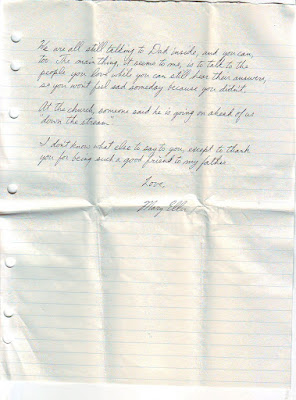 We are all still talking to Dad inside, and you can,
too. The main thing, it seems to me, is to talk to the
people you love while you can still hear their answers,
so you won't feel sad someday because you didn't.
At the church, someone said he is going on ahead of us
"down the stream."
I don't know what else to say to you, except to thank
you for being such a good friend to my father.
Love,
Mary Ellen